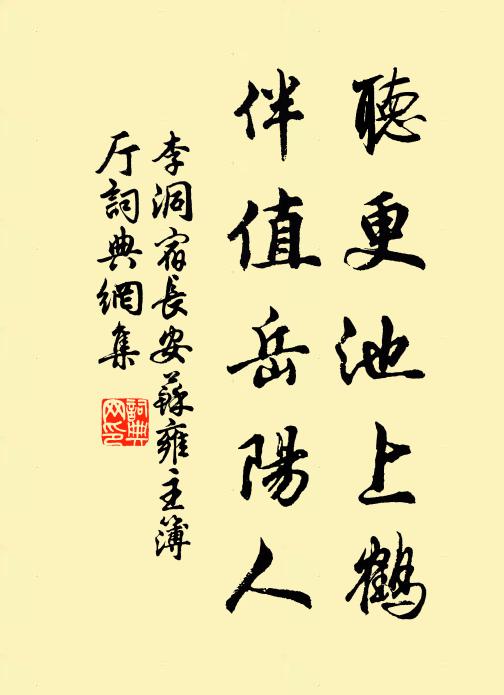 聽更池上鶴
伴值岳陽人
李洞宿長安蘇雍主簿
厅詞典網集
詞典网印